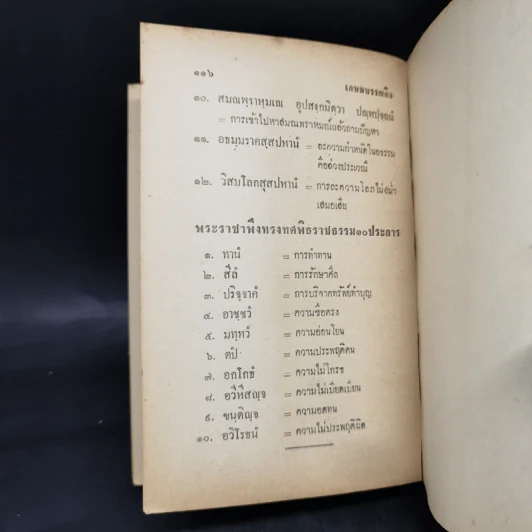 ๑๑๖
เกษมบรรณกิจ
๑๐. สมณพฺราหฺมเณ อุปสงฺกมิตฺวา ปญฺหปุจฺฉนํ
= การเข้าไปหาสมณพราหมณ์แล้วถามปัญหา
๑๑. อธมฺมราคสฺสปหานํ = ละความกำหนัดในอธรรม
คือล่วงประเวณี
๑๒. วิสมโลภสฺสปหานํ = การละความโลภไม่สม่ำ
เสมอเสีย
พระราชาพึงทรงทศพิธราชธรรม๑๐ประการ
๑. ทานํ = การทำทาน
๒. สีลํ = การรักษาศีล
๓. ปริจฺจาคํ = การบริจาคทรัพย์ทำบุญ
๔. อาชฺชวํ = ความซื่อตรง
๕. มทฺทวํ = ความอ่อนโยน
๖. ตปํ = ความประพฤติตน
๗. อกฺโกธํ = ความไม่โกรธ
๘. อวิหึสญฺจ = ความไม่เบียดเบียน
๙. ขนฺติญฺจ = ความอดทน
๑๐. อวิโรธนํ = ความไม่ประพฤติผิด